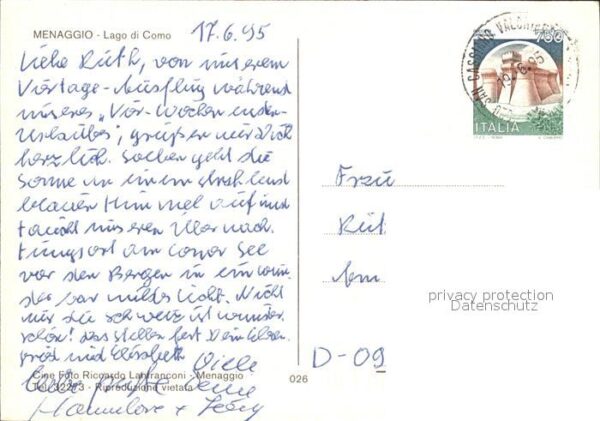 MENAGGIO - Lago di Como 17.6.95
Liebe Ruth, von unserem
Vortage-Ausflug während
unseres „Vor-Wochenenden-
Urlaubes", grüßen wir Dich
herzlich. Soeben geht die
Sonne in einem strahlend
blauen Himmel auf und
taucht unseren Übernach-
tungsort am Comer See
vor den Bergen in ein wun-
derbar mildes Licht. Nicht
nur die Schweiz ist wunder-
schön! Das stellen fest Dein
und Elisabeth Viele
liebe Grüße Deine
Hannelore +
Cine Foto Riccardo Lanfranconi - Menaggio
Tel. 32273 - Riproduzione vietata
026
750
SAN CASSIANO VALCHIAVENNA
ITALIA
Frau
privacy protection
Datenschutz
D-09